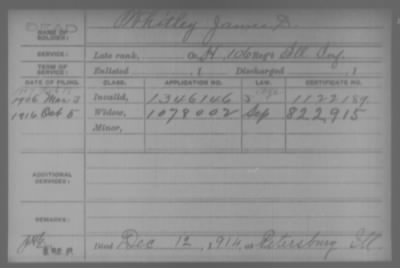 DEAD
NAME OF SOLDIER: Whitley James D.
SERVICE: Late rank, Co. H, 106 Regt Ill Inf.
TERM OF SERVICE: Enlisted , 1 Discharged , 1
DATE OF FILING. CLASS. APPLICATION NO. LAW. CERTIFICATE NO.
1906 Mar 3 Invalid, 1346146 1122189
1914 5 Widow, 1078002 Sep 822,915
Minor,
ADDITIONAL SERVICES:
REMARKS:
Died Dec 12, 1914, at Petersburg Ill.